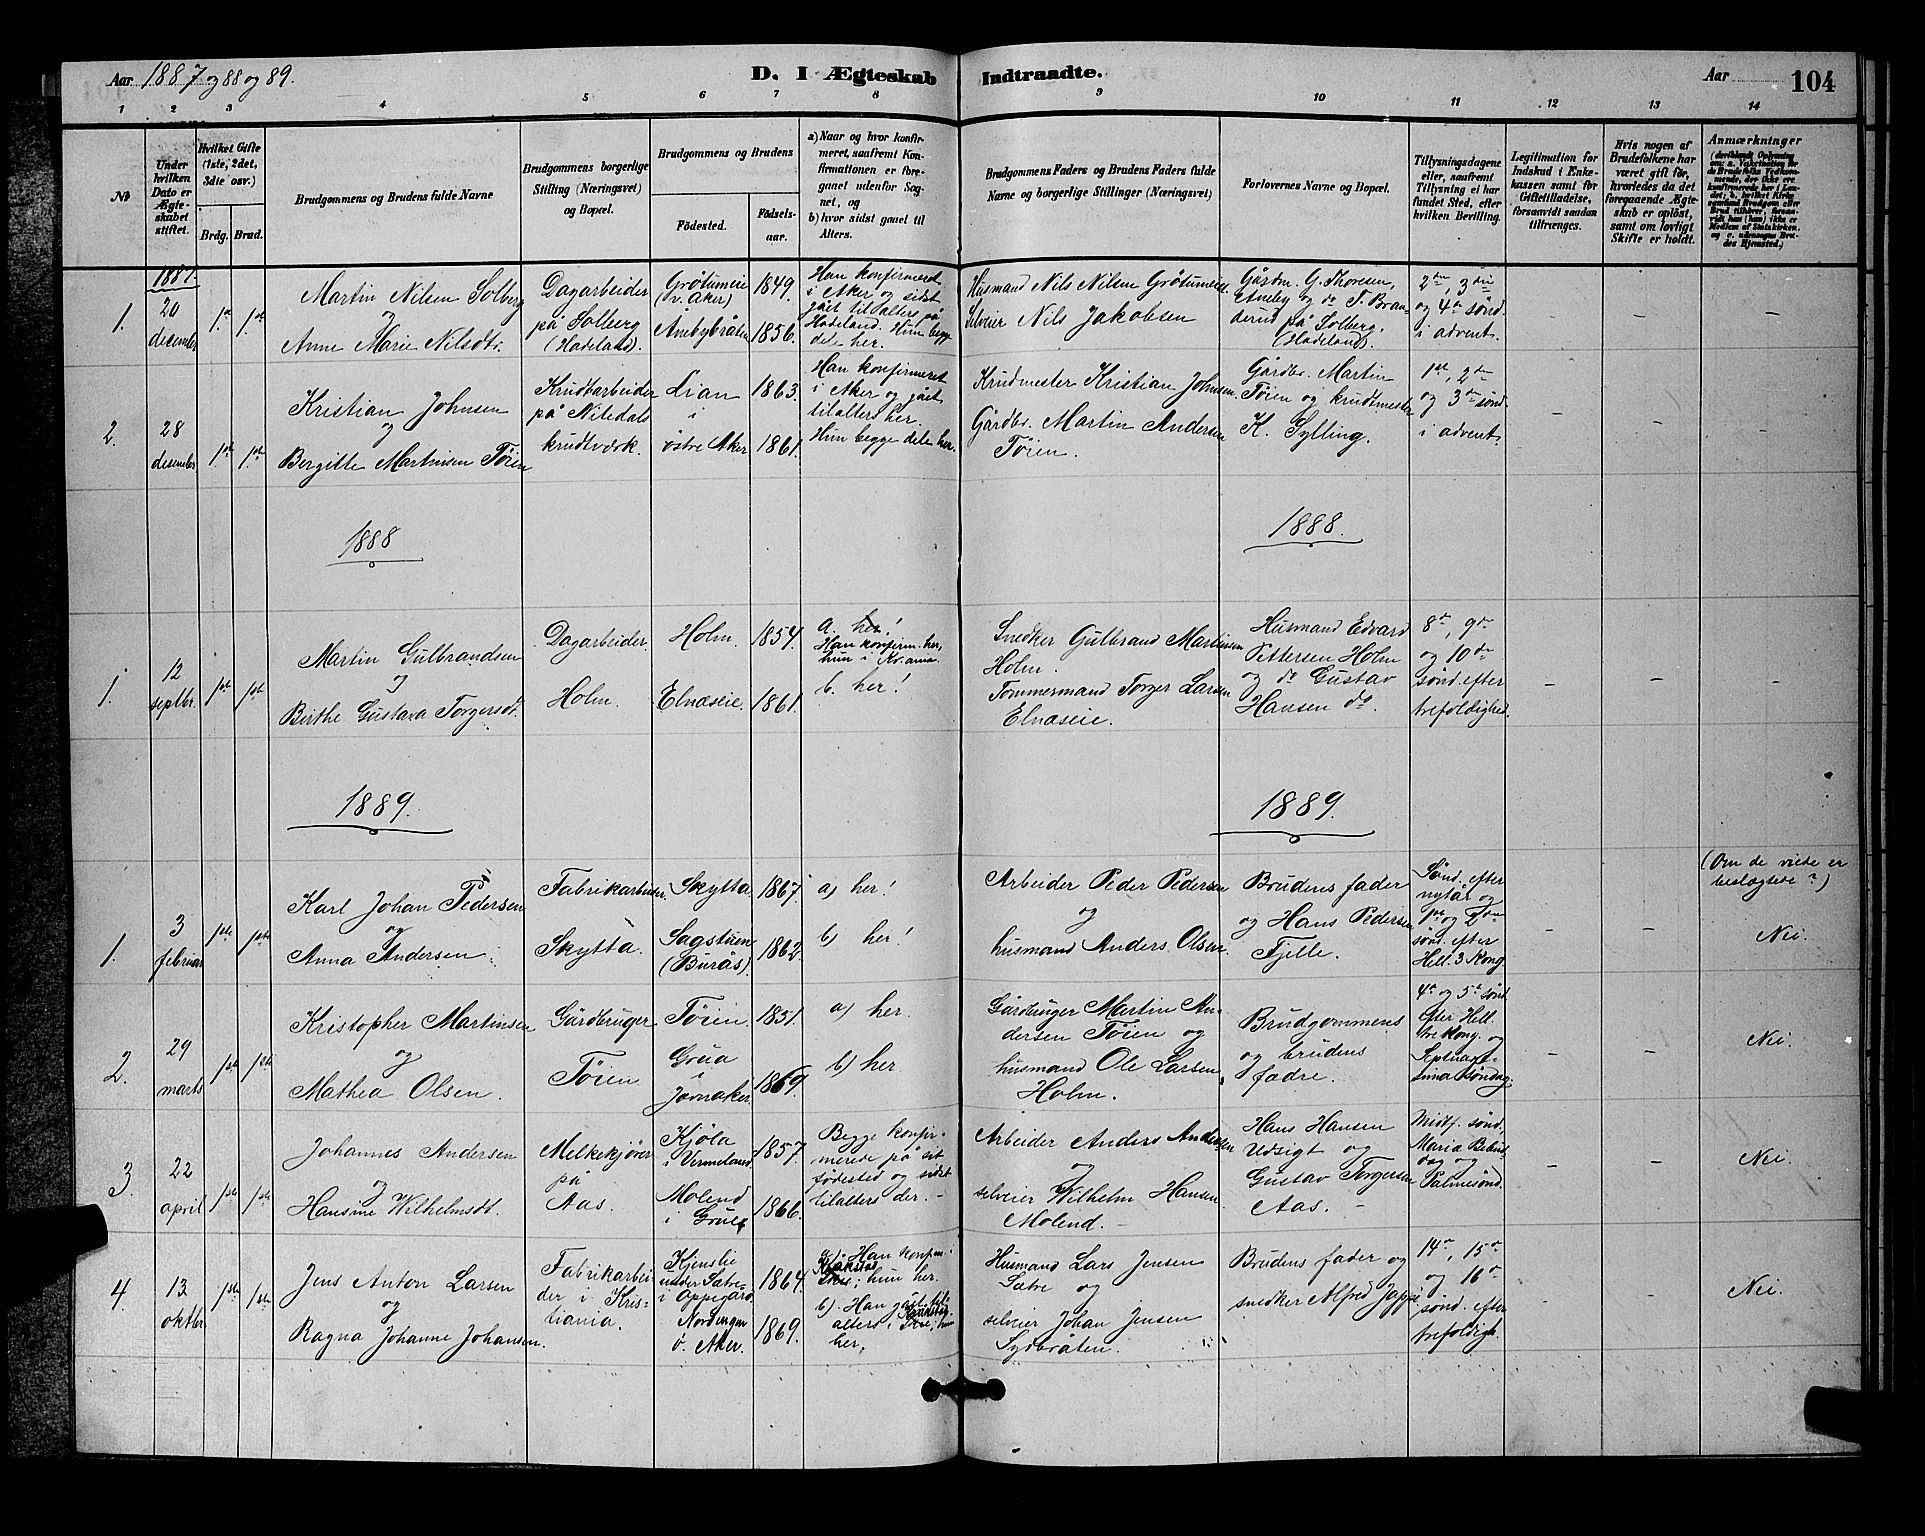 Aar 1887 og 88 og 89.
D. I Ægteskab Indtraadte.
Aar 104
1 2 3 4 5 6 7 8 9 10 11 12 13 14
№
Under hvilken Dato er Ægteskabet stiftet.
Hvilket Gifte (1ste, 2det, 3dte osv.)
Brdg. Brud.
Brudgommens og Brudens fulde Navne
Brudgommens borgerlige Stilling (Næringsvei) og Bopæl.
Brudgommens og Brudens
Fødested.
Fødselsaar.
a) Naar og hvor konfirmeret, saafremt Konfirmationen er foregaaet udenfor Sognet, og
b) hvor sidst gaaet til Alters.
Brudgommens Faders og Brudens Faders fulde Navne og borgerlige Stillinger (Næringsvei)
Forlovernes Navne og Bopæl.
Tillysningsdagene eller, saafremt Tillysning ei har fundet Sted, efter hvilken Bevilling.
Legitimation for Indskud i Enkekassen samt for Giftetilladelse, forsaavidt saadan tiltrænges.
Hvis nogen af Brudefolkene har været gift før, hvorledes da det foregaaende Ægteskab er opløst, samt om lovligt Skifte er holdt.
Anmærkninger
1887.
1.
20 desember
1ste 1ste
Martin Nilsen Solberg
og
Anne Marie Nilsdtr.
Dagarbeider
på Solberg
(Hadeland).
Grøtumeie
(v. Aker)
Åmebybråten
1849.
1856.
Han konfirmeret
i Aker og sidst
gået til alters på
Hadeland. Hun begge
dele her.
Husmand Nils Nilsen Grøtumeie.
Selveier Nils Jakobsen
Gårdm. G. Thoresen,
Åmeby og do T. Branderud
på Solberg.
(Hadeland).
2den, 3die
og 4de sønd.
i advent.
2.
28 desember
1ste 1ste
Kristian Johnsen
og
Bergitte Martinsen Tøien
Krudtarbeider
på Nitedals
krudtværk.
Lian
i
østre Aker
1863.
1861.
Han konfirmeret
i Aker og gået
tilalters her.
Hun begge dele her.
Krudmester Kristian Johnsen
Gårdbr. Martin Andersen
Tøien.
Gårdbr. Martin
Tøien og krudtmester
K. Sylling.
1ste, 2den
og 3die sønd.
i advent.
1888 1888.
1.
12 septbr.
1ste 1ste
Martin Gulbrandsen
og
Birthe Gustava Torgersdt.
Dagarbeider.
Holm.
Holm.
Elnæseie.
1854.
1861.
a. her!
Han konfirm. her,
hun i Kr.ania.
b. her!
Snedker Gulbrand Martinsen
Holm.
Tømmermand Torger Larsen
Elnæseie.
Husmand Edvard
Pettersen Holm
og do Gustav
Hansen do.
8de, 9de
og 10de
sønd. efter
trefoldighed.
1889. 1889.
1.
3 februar
1ste 1ste
Karl Johan Pedersen
og
Anna Andersen
Fabrikarbeider
Skytta
Skytta.
Sagstuen
(Burås)
1867.
1862.
a) her!
b) her!
Arbeider Peder Pedersen
og
husmand Anders Olsen.
Brudens fader
og Hans Pedersen
Fjelle.
Sønd. efter
nytår og
1ste og 2den
sønd. efter
Hell. 3 Kong.
(Om de viede er
beslægtede?)
Nei.
2.
29 marts
1ste 1ste
Kristopher Martinsen
og
Mathea Olsen.
Gårdbruger
Tøien
Tøien.
Grua
i
Jevnaker.
1851.
1869.
a) her.
b) her
Gårdbruger Martin Andersen
Tøien og
husmand Ole Larsen
Holm.
Brudgommens
og brudens
fædre.
4de og 5te sønd.
efter Hell.
tre kong. og
Septuagesima
søndag.
Nei.
3.
22 april
1ste 1ste
Johannes Andersen
og
Hansine Wilhelmsdt.
Melkekjører
på
Aas.
Kjøla
i Vermeland.
Molend
i Grue
1857.
1866.
Begge konfirmerede
på sit
fødested og sidst
tilalters der.
Arbeider Anders Andersen
og
selveier Wilhelm Hansen
Molend.
Hans Hansen
Udsigt og
Gustav Torgersen
Aas.
Midf. sønd.
Maria Bebud.
dag og
Palmesønd.
Nei.
4.
13 oktbr.
1ste 1ste
Jens Anton Larsen
og
Ragna Johanne Johansen.
Fabrikarbeider
i Kristiania.
Kjenslie
under Sætre
i Oppegård
Nordengen
ø. Aker.
1864.
1869.
a) Han konfirm. i
Kråkstad; hun her.
b) Han gået til
alters i Kråkstad; hun
her.
Husmand Lars Jensen
Sætre og
selveier Johan Jensen
Sydbråten.
Brudens fader og
snedker Alfred Jappe
14de, 15de
og 16de
sønd. efter
trefoldigh.
Nei.